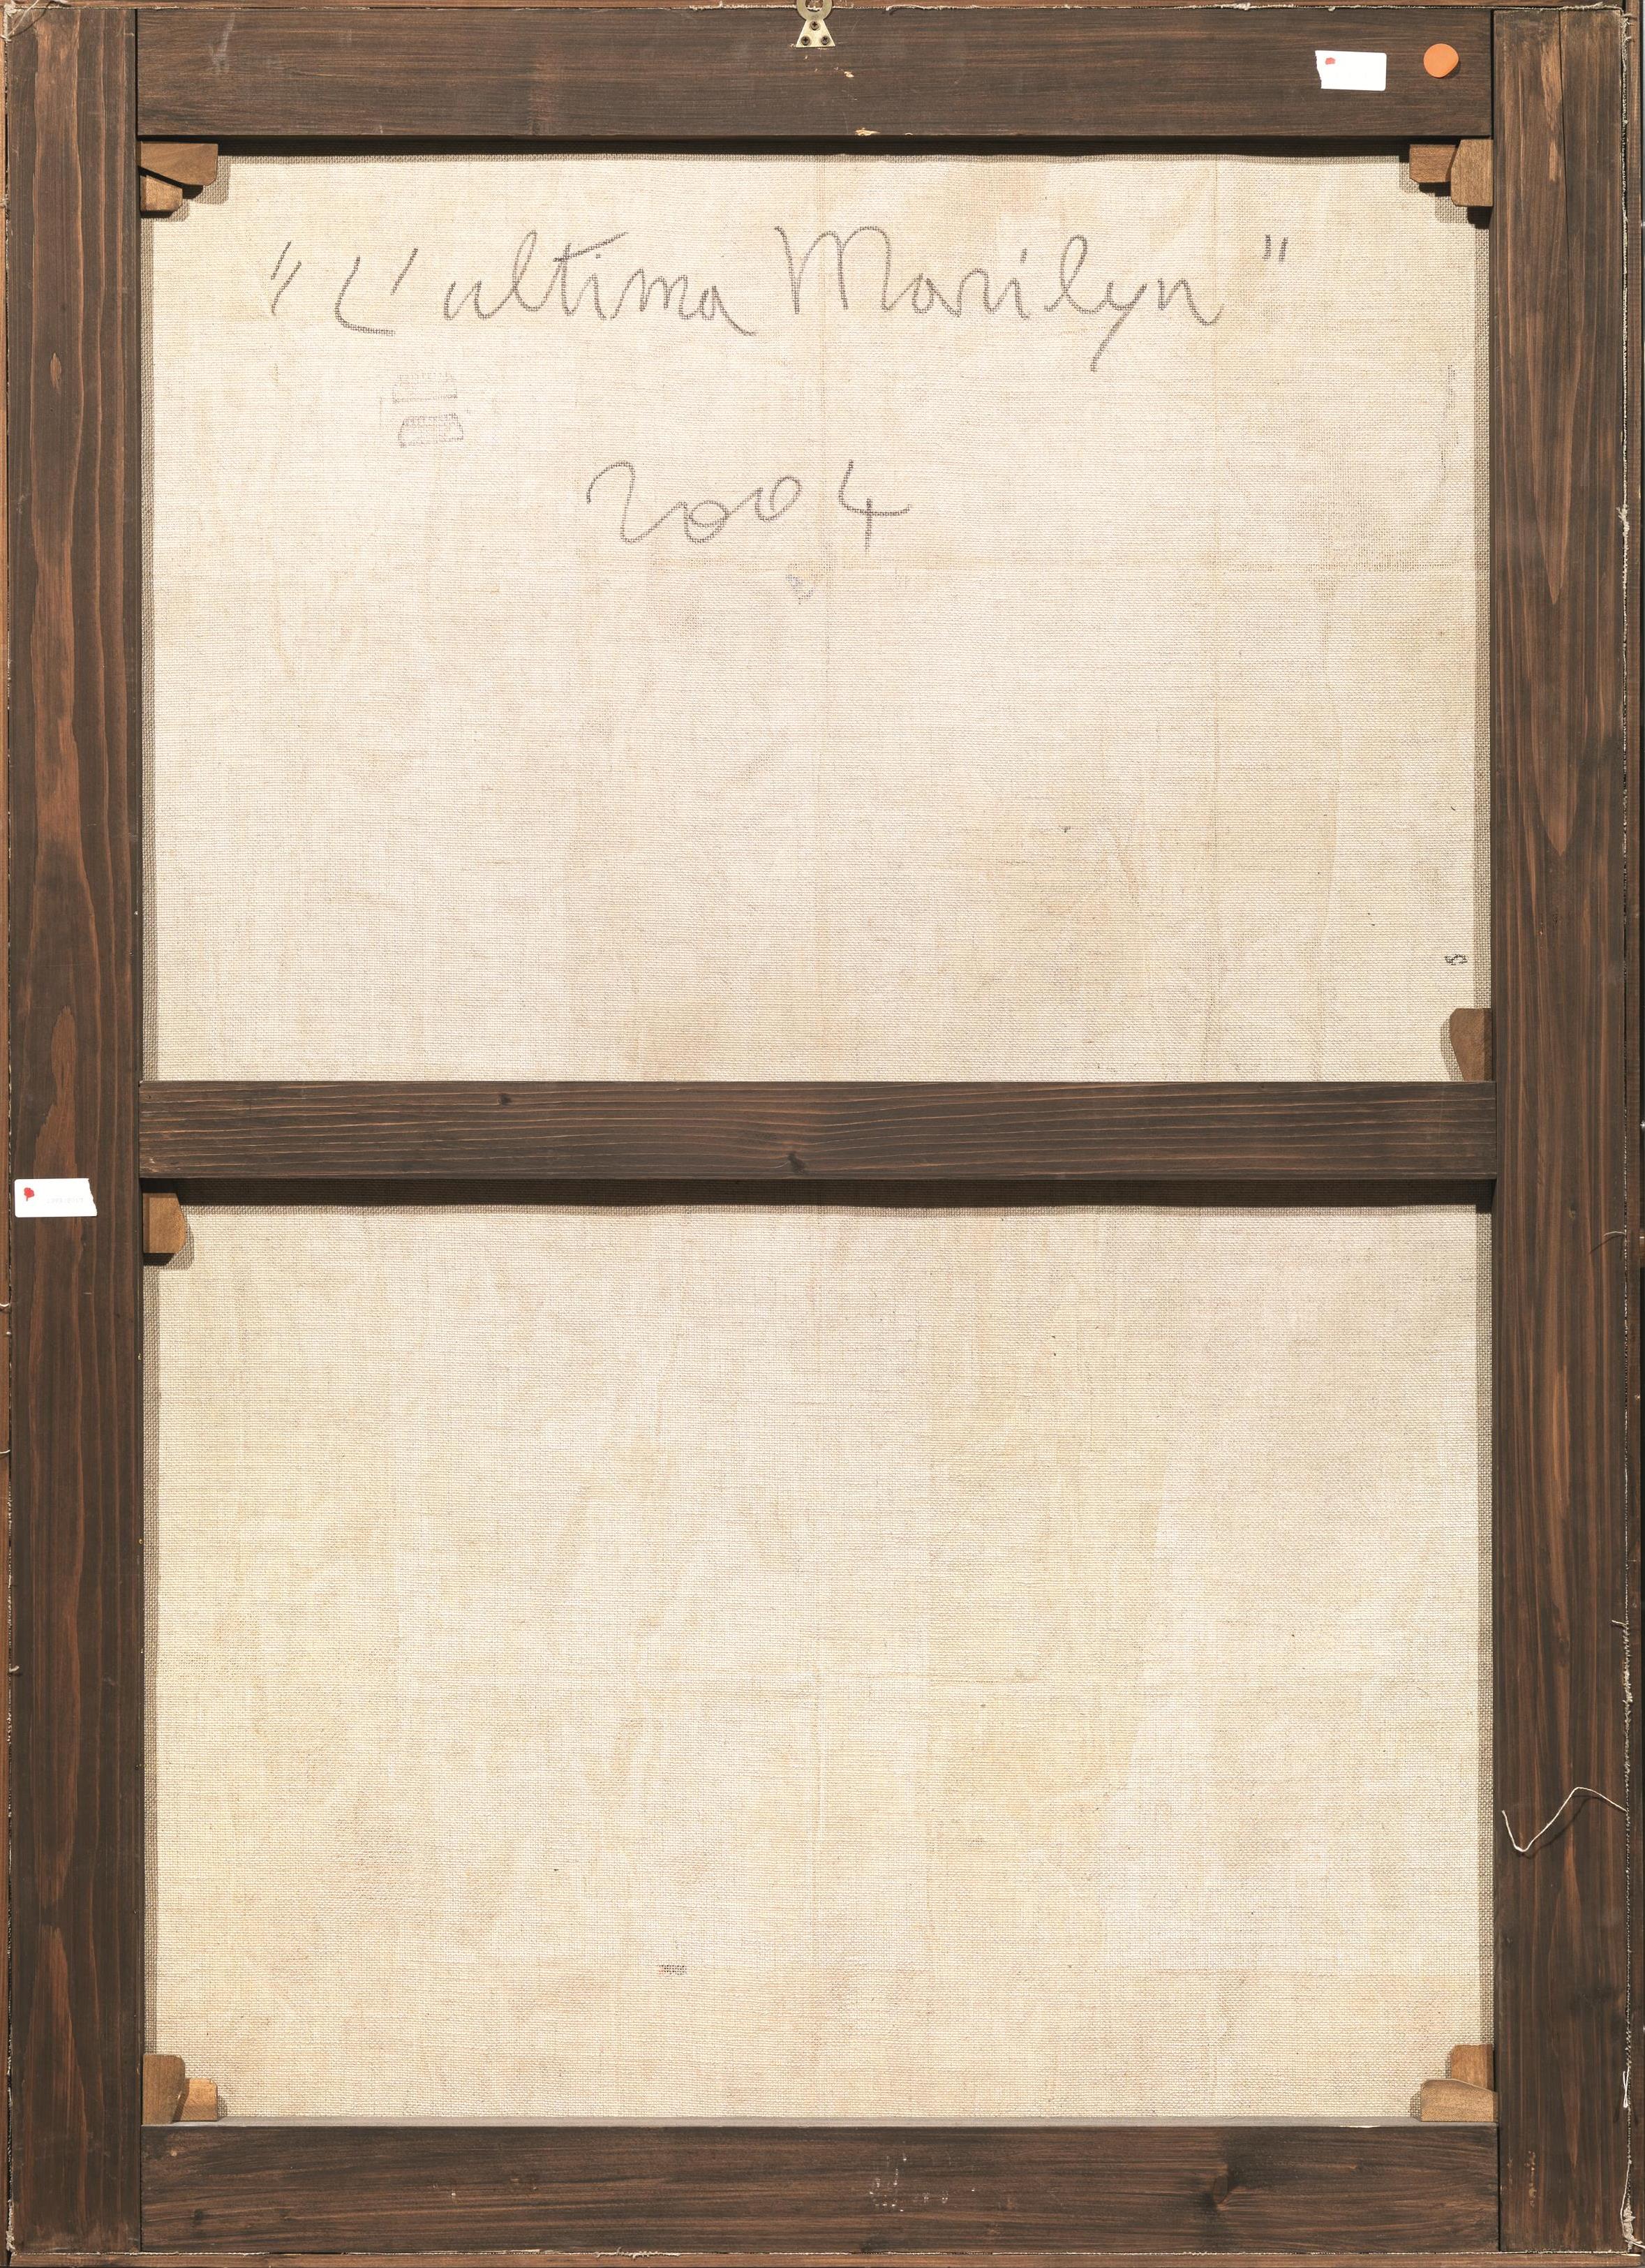 "L'ultima Marilyn"
2004
5